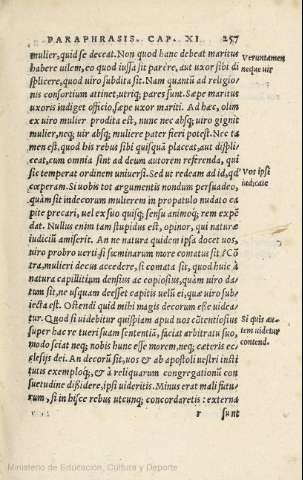 PARAPHRASIS. CAP. XI. 257
mulier, quid se deceat. Non quod hanc debeat maritus
habere uilem, eo quod iussa sit parére, aut uxor sibi di
splicere, quod uiro subdita sit. Nam quantũ ad religio/
nis consortium attinet, utriq; pares sunt. Sæpe maritus
uxoris indiget officio, sæpe uxor mariti. Ad hæc, olim
ex uiro mulier prodita est, nunc nec absq; uiro gignit
mulier, neq; uir absq; muliere pater fieri potest. Nec ta
men est, quod his rebus sibi quisquã placeat, aut displi
ceat, cum omnia sint ad deum autorem referenda, qui
sic temperat ordinem uniuersi. Sed ut redeam ad id, qđ
cœperam. Si uobis tot argumentis nondum persuadeo,
quàm sit indecorum mulierem in propatulo nudato ca
pite precari, uel ex suo quisq; sensu animoq; rem expẽ
dat. Nullus enim tam stupidus est, opinor, qui naturæ
iudiciũ amiserit. An ne natura quidem ipsa docet uos,
uiro probro uerti, si fœminarum more comatus sit? Cõ
tra, mulieri decus accedere, si comata sit, quod huic à
natura capillitium densius ac copiosius, quàm uiro da/
tum sit, ne usquam deesset capitis uelũ ei, quæ uiro sub/
iecta est. Ostendi quid mihi magis decorum esse uidea/
tur. Quod si uidebitur quispiam apud uos cõtentiosius
super hac re tueri suam sententiã, faciat arbitratu suo,
modo sciat neq; nobis hunc esse morem, neq; cæteris ec
clesijs dei. An decorũ sit, uos & ab apostoli uestri insti
tutis exemploq;, & à reliquarum congregationũ con
suetudine dißidere, ipsi uideritis. Minus erat mali futu/
rum, si in hisce rebus utcunq; concordaretis: externa
r sunt
Veruntamen
neque uir
Vos ipsi
iudicate
Si quis au/
tem uidetur
contend.
Ministerio de Educación, Cultura y Deporte